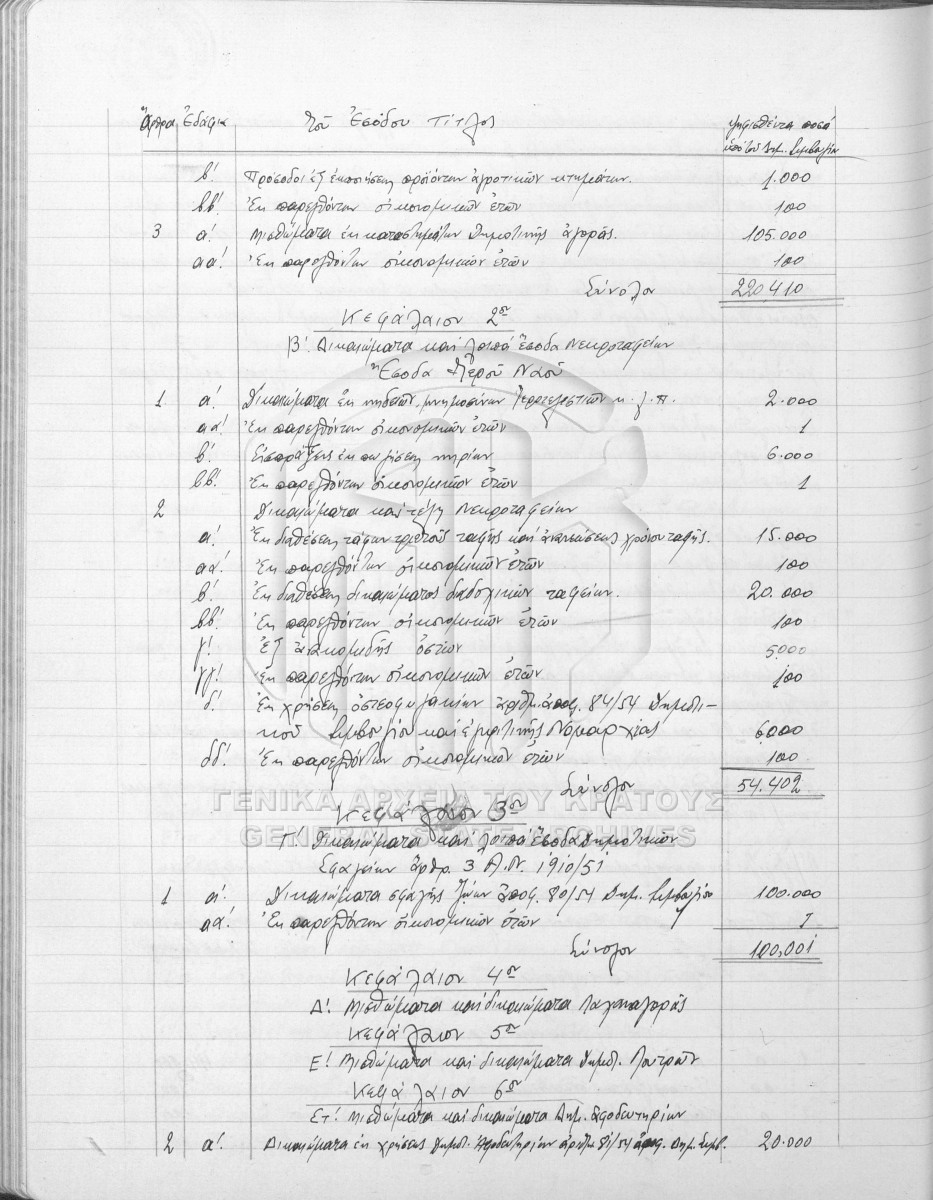 Ἄρθρα Ἐδάφια Τοῦ Ἐσόδου Τίτλος ψηφισθέντα ποσά
ὑπό τοῦ Δημ. Συμβουλίου
β΄. Πρόσοδοι ἐξ ἐκποιήσεως προϊόντων ἀγροτικῶν κτημάτων. 1.000
ββ΄. Ἐκ παρελθόντων οἰκονομικῶν ἐτῶν 100
3 α΄. Μισθώματα ἐκ καταστημάτων δημοτικῆς ἀγορᾶς. 105.000
αα΄. Ἐκ παρελθόντων οἰκονομικῶν ἐτῶν 100
Σύνολον 220.410
Κεφάλαιον 2ον
Β΄. Δικαιώματα καί λοιπά ἔσοδα Νεκροταφείων
Ἔσοδα Ἱεροῦ Ναοῦ
1 α΄. Δικαιώματα ἐκ κηδειῶν, μνημοσύνων Ἱεροτελεστιῶν κ.λ.π. 2.000
αα΄. Ἐκ παρελθόντων οἰκονομικῶν ἐτῶν 1
β΄. Εἰσπράξεις ἐκ πωλήσεως κηρίων 6.000
ββ΄. Ἐκ παρελθόντων οἰκονομικῶν ἐτῶν 1
2 Δικαιώματα καί τέλη Νεκροταφείων
α΄. Ἐκ διαθέσεως τάφων τριετοῦς ταφῆς καί ἀνανεώσεως χρόνου ταφῆς. 15.000
αα΄. Ἐκ παρελθόντων οἰκονομικῶν ἐτῶν 100
β΄. Ἐκ διαθέσεως δικαιώματος διαδοχικῶν ταφείων. 20.000
ββ΄. Ἐκ παρελθόντων οἰκονομικῶν ἐτῶν 100
γ΄. Ἐξ ἀνακομιδῆς ὀστῶν 5.000
γγ΄. Ἐκ παρελθόντων οἰκονομικῶν ἐτῶν 100
δ΄. Ἐκ χρήσεως ὀστεοφυλακίων ἀριθμ. ἀποφ. 84/54 Δημοτι-
κοῦ Συμβουλίου καί ἐγκριτικῆς Νομαρχίας 6.000
δδ΄. Ἐκ παρελθόντων οἰκονομικῶν ἐτῶν 100
Σύνολον 54.402
ΓΕΝΙΚΑ ΑΡΧΕΙΑ ΤΟΥ ΚΡΑΤΟΥΣ
Κεφάλαιον 3ον
GENERAL STATE ARCHIVES
Γ΄. Δικαιώματα καί λοιπά ἔσοδα Δημοτικῶν
Σφαγείων ἄρθρ. 3 Α.Ν. 1910/51
1 α΄. Δικαιώματα σφαγῆς ζώων ἀποφ. 80/54 Δημ. Συμβουλίου 100.000
αα΄. Ἐκ παρελθόντων οἰκονομικῶν ἐτῶν 1
Σύνολον 100.001
Κεφάλαιον 4ον
Δ΄. Μισθώματα καί δικαιώματα Λαχαναγορᾶς
Κεφάλαιον 5ον
Ε΄. Μισθώματα καί δικαιώματα Δημοτ. Λουτρῶν
Κεφάλαιον 6ον
ΣΤ΄. Μισθώματα καί δικαιώματα Δημ. Ἀφοδευτηρίων
2 α΄. Δικαιώματα ἐκ χρήσεως Δημοτ. Ἀφοδευτηρίων ἀριθμ. 81/54 ἀποφ. Δημ. Συμβ. 20.000